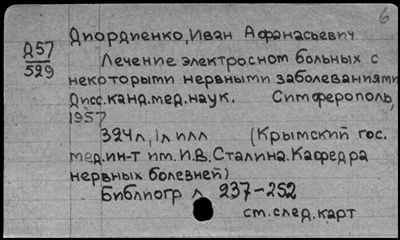 6
Д57
529
Диордиенко, Иван Афанасьевич
Лечение электросном больных с
некоторыми нервными заболеваниями
Дисс. канд. мед. наук. Симферополь,
1957
324 л, 1 л илл (Крымский гос.
мед. ин-т им. И.В. Сталина. Кафедра
нервных болезней)
Библиогр л 237-252
ст. след. карт